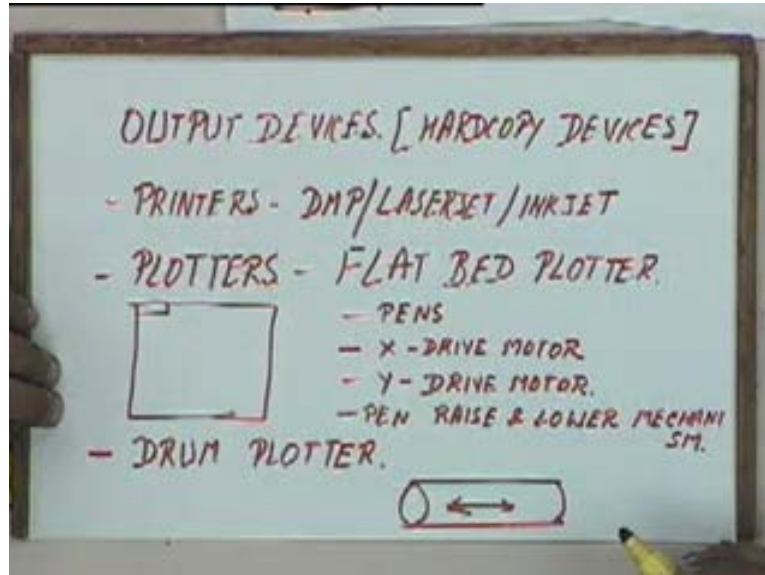 OUTPUT DEVICES. [HARDCOPY DEVICES]
- PRINTERS - DMP/LASERJET/INKJET
- PLOTTERS - FLAT BED PLOTTER.
- PENS
- X-DRIVE MOTOR
- Y-DRIVE MOTOR.
- PEN RAISE & LOWER MECHANI
SM.
- DRUM PLOTTER.